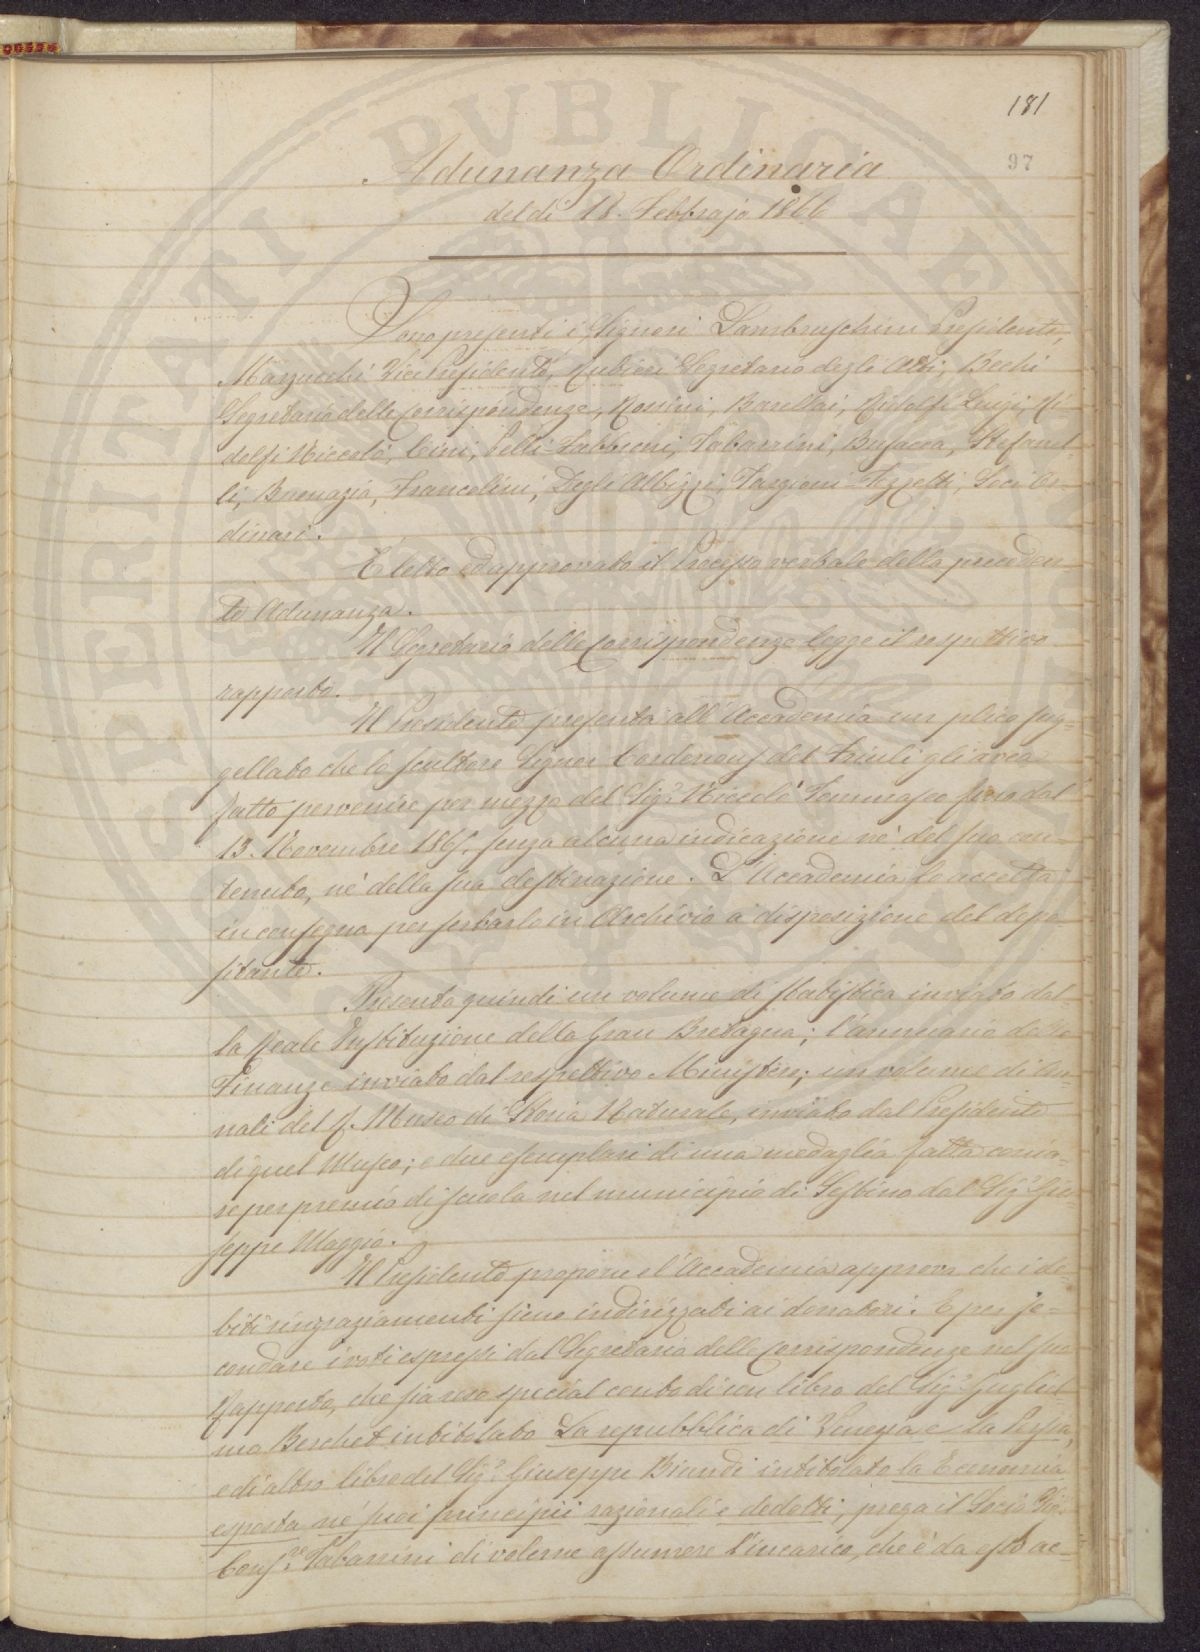 181
97
Adunanza Ordinaria
del dì 18. Febbrajo 1866
Sono presenti i Signori Lambruschini Presidente,
Marzucchi Vice Presidente, Rubieri Segretario degli Atti, Bechi
Segretario delle Corrispondenze, Rossini, Barellai, Ridolfi Luigi, Ri-
dolfi Niccolò, Cini, Pelli-Fabbroni, Tabarrini, Busacca, Stefanel-
li, Brenazia, Francolini, Degli Albizzi, Targioni-Tozzetti, Soci Or-
dinari.
È letto ed approvato il Processo verbale della preceden-
te Adunanza.
Il Segretario delle Corrispondenze legge il respettivo
rapporto.
Il Presidente presenta all'Accademia un plico sug-
gellato che lo scultore Signor Cordenons del Friuli gli avea
fatto pervenire per mezzo del Sig.r Niccolò Tommaseo fino dal
13. Novembre 1865, senza alcuna indicazione nè del suo con-
tenuto, nè della sua destinazione. L'Accademia lo accetta
in consegna per serbarlo in Archivio a disposizione del depo-
sitante.
Presenta quindi un volume di statistica inviato dal-
la Reale Instituzione della Gran Bretagna; l'annuario delle
Finanze inviato dal respettivo Ministero; un volume di An-
nali del R. Museo di Storia Naturale, inviato dal Presidente
di quel Museo; e due esemplari di una medaglia fatta conia-
re per premio di scuola nel municipio di Sestino dal Sig.r Giu-
seppe Maggio.
Il Presidente propone e l'Accademia approva che i de-
biti ringraziamenti sieno indirizzati ai donatori. E per se-
condare i voti espressi dal Segretario delle Corrispondenze nel suo
Rapporto, che sia reso special conto di un libro del Sig.r Gugliel-
mo Berchet intitolato La repubblica di Venezia e la Persia,
e di altro libro del Sig.r Giuseppe Biundi intitolato la Economia
esposta ne' suoi principii razionali e dedotti, prega il Socio
Cons.re Tabarrini di volerne assumere l'incarico, che è da esso ac-